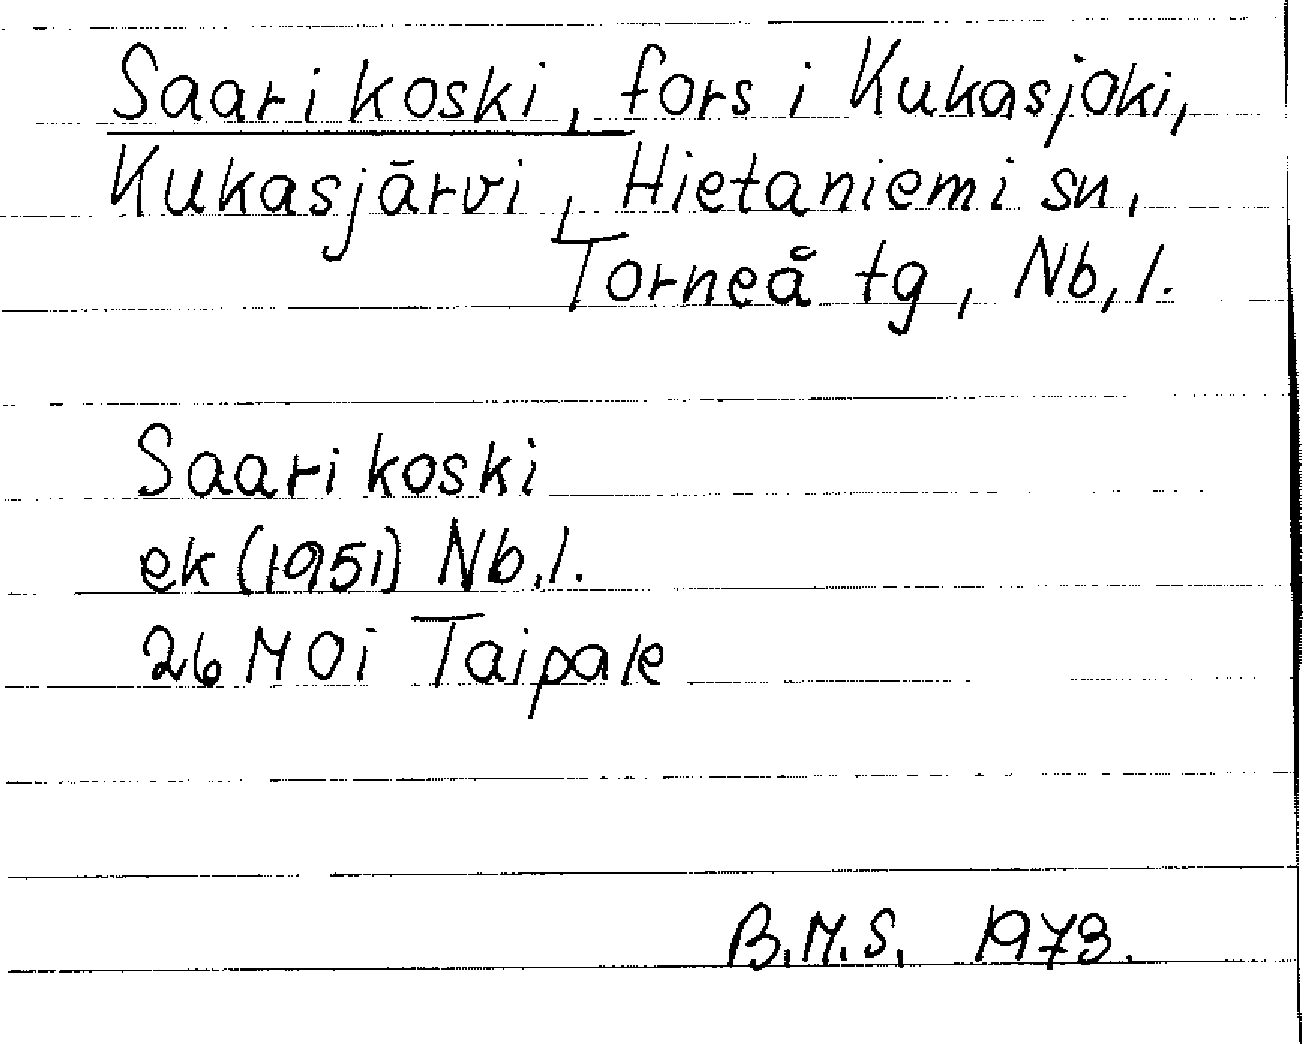 Saarikoski, fors i Kukasjoki,
Kukasjärvi, Hietaniemi sn,
Torneå tg, Nb,l.
Saarikoski
ek (1951) Nb.l.
26 M 0i Taipale
B.M.S. 1973.